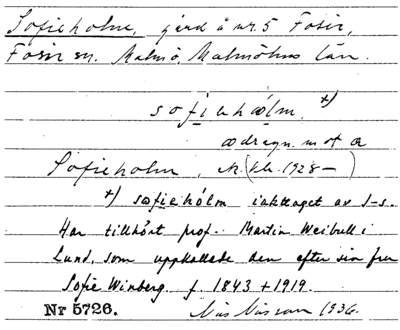 Sofieholm, gård å nr 5 Fosie,
Fosie sn. Malmö, Malmöhus län.
sofiəhœ́lm +)
œ dragn. mot a
Sofieholm, (kk. 1928–)
+) sœfiehólm iakttaget av J-s.
Har tillhört prof. Martin Weibull i
Lund, som uppkallade den efter sin fru
Sofie Winberg f. 1843 + 1919.
Nr 5726. Nils Nilsson 1936.